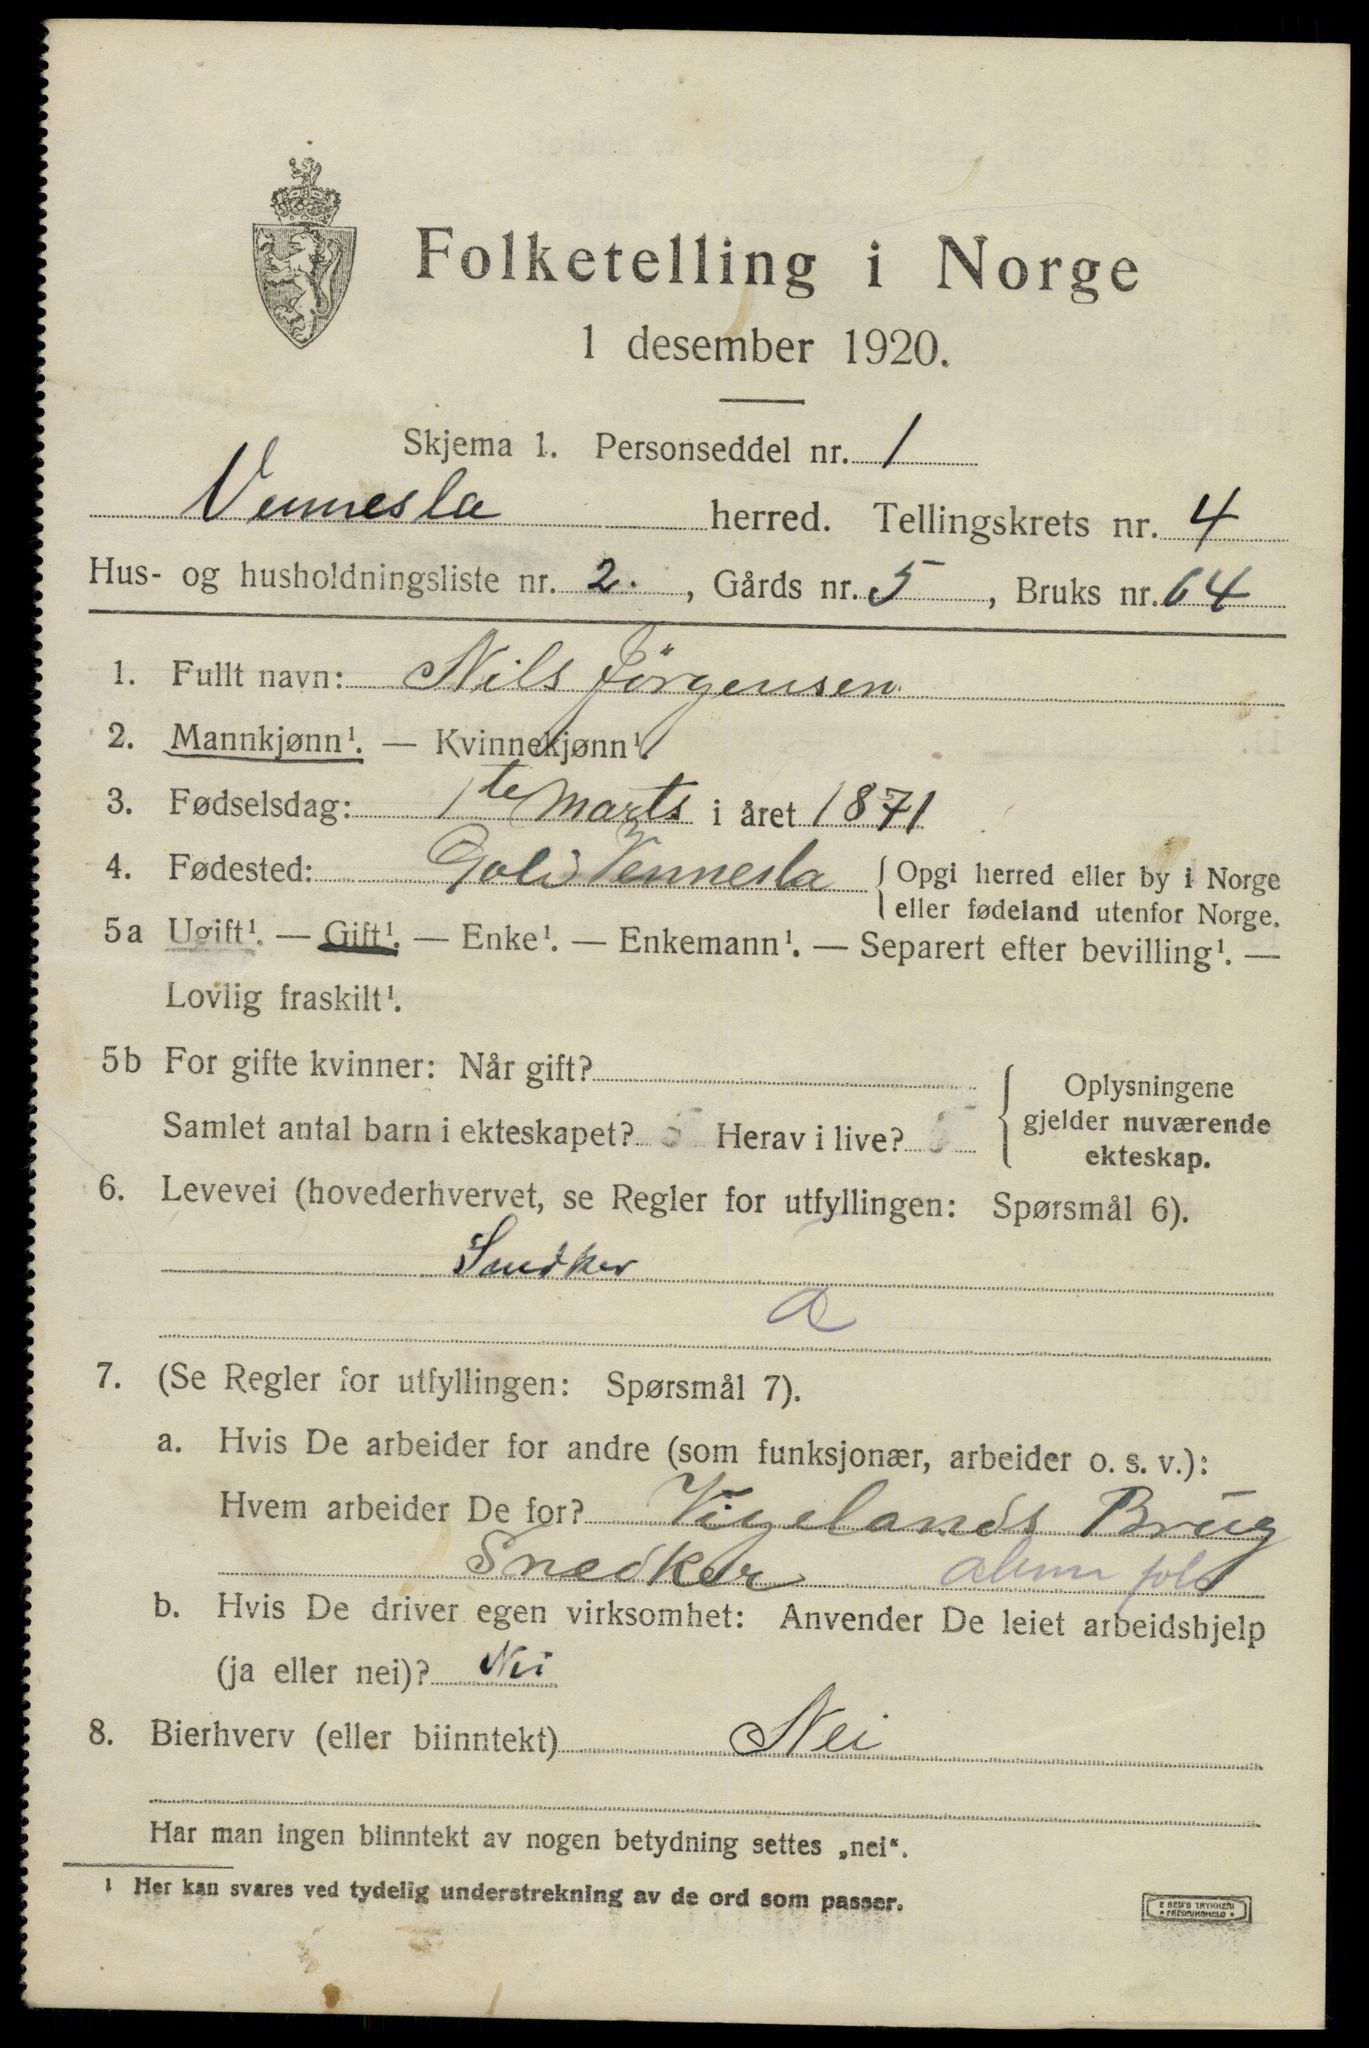 Folketelling i Norge
1 desember 1920.
Skjema 1. Personseddel nr. 1
Vennesla herred. Tellingskrets nr. 4
Hus- og husholdningsliste nr. 2. , Gårds nr. 5 , Bruks nr. 64
1. Fullt navn: Nils Jörgensen
2. Mannkjønn¹. — Kvinnekjønn¹.
3. Fødselsdag: 1te Marts i året 1871
4. Fødested: Vennesla { Opgi herred eller by i Norge
eller fødeland utenfor Norge.
5a Ugift¹. — Gift¹. — Enke¹. — Enkemann¹. — Separert efter bevilling¹. —
Lovlig fraskilt¹.
5b For gifte kvinner: Når gift? { Oplysningene
Samlet antal barn i ekteskapet? 5 Herav i live? 5 gjelder nuværende
ekteskap.
6. Levevei (hovederhvervet, se Regler for utfyllingen: Spørsmål 6).
Snedker
a
7. (Se Regler for utfyllingen: Spørsmål 7).
a. Hvis De arbeider for andre (som funksjonær, arbeider o. s. v.):
Hvem arbeider De for? Vigelands Brug
Snedker
b. Hvis De driver egen virksomhet: Anvender De leiet arbeidshjelp
(ja eller nei)? Nei
8. Bierhverv (eller biinntekt) Nei
Har man ingen biinntekt av nogen betydning settes „nei“.
1 Her kan svares ved tydelig understrekning av de ord som passer.
E SEM'S TRYKKERI
• FREDRIKSHALD •